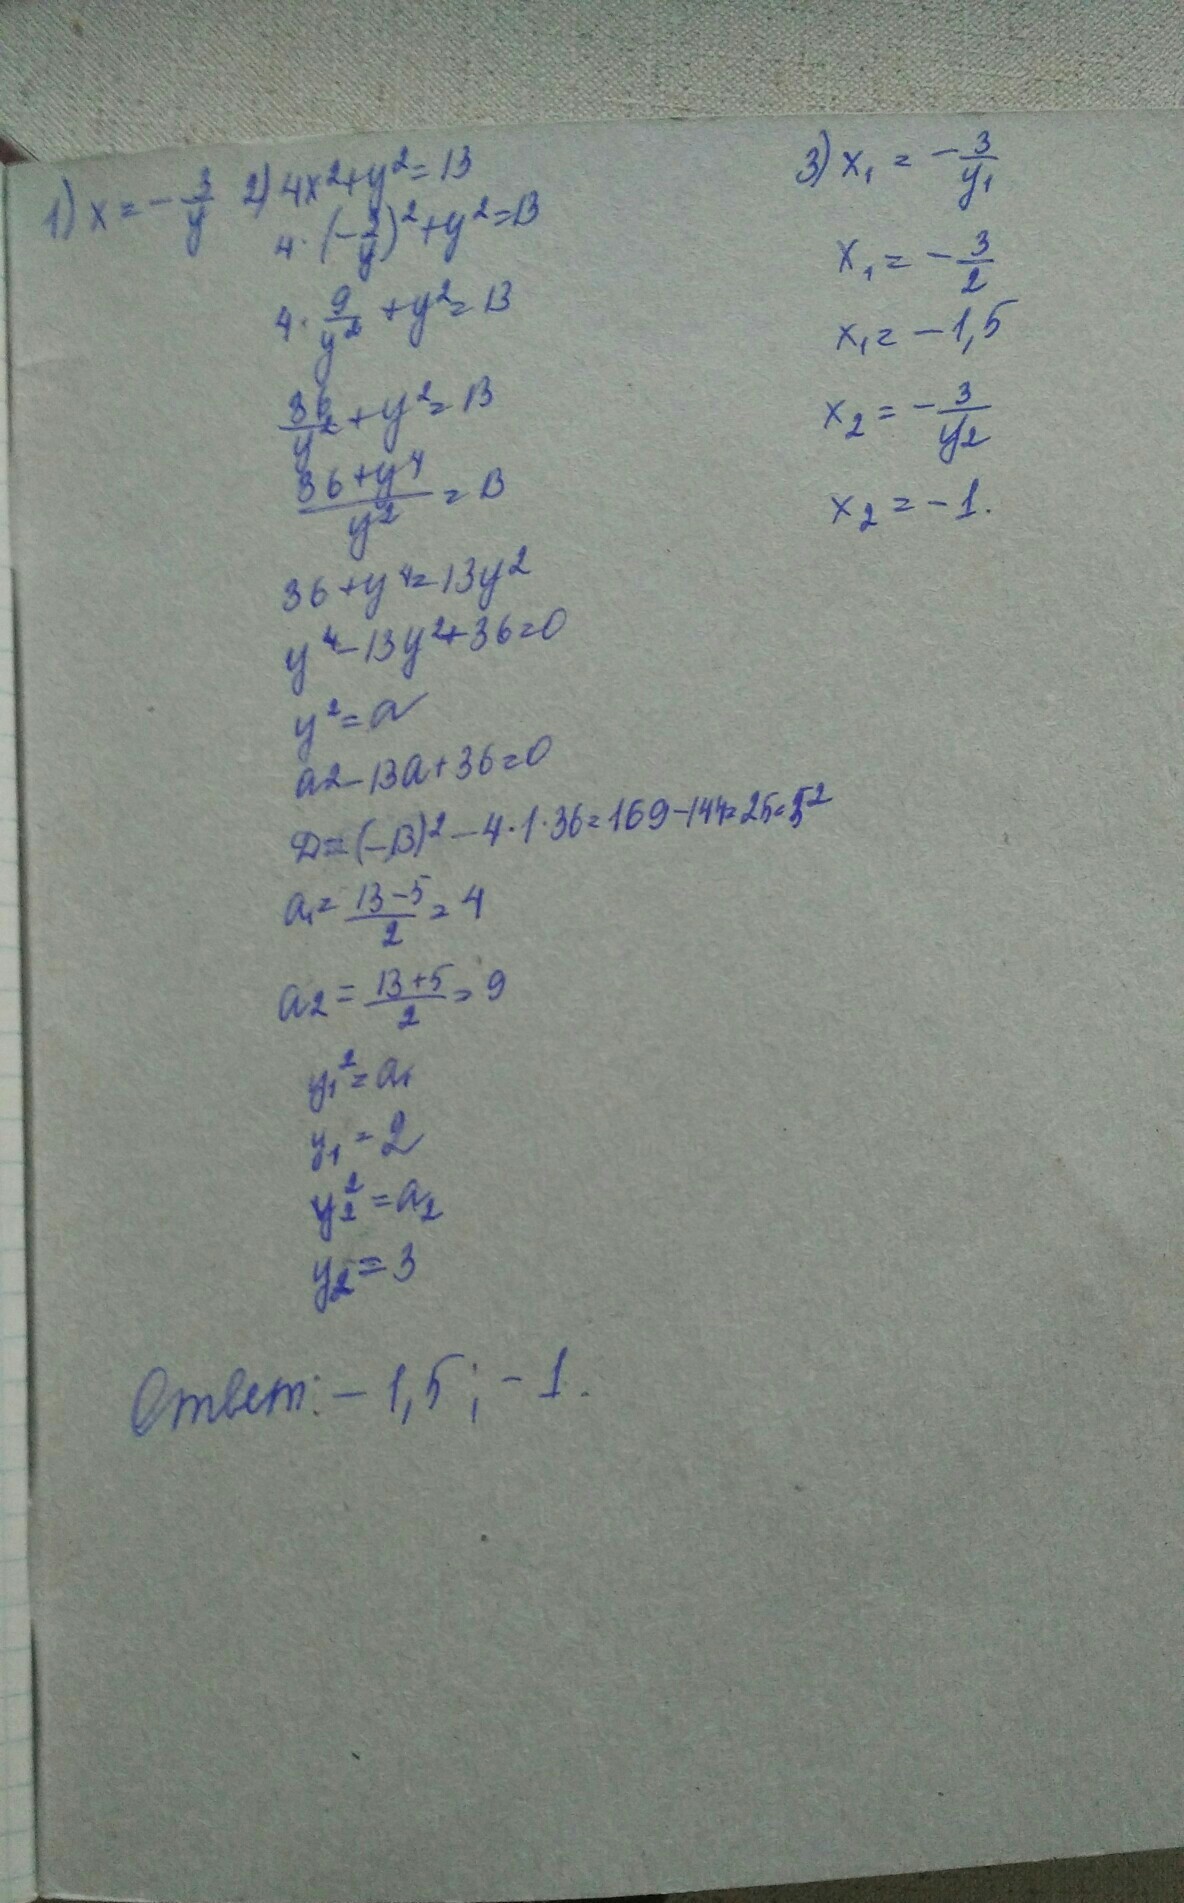 1) x = -3/y
2) 4x²+y²=13
4·(-3/y)²+y²=13
4·9/y²+y²=13
36/y²+y²=13
(36+y⁴)/y²=13
36+y⁴=13y²
y⁴-13y²+36=0
y²=a
a2-13a+36=0
D=(-13)²-4·1·36=169-144=25=5²
a₁=(13-5)/2=4
a2=(13+5)/2=9
y₁²=a₁
y₁=2
y₂²=a₂
y₂=3
3) x₁ = -3/y₁
x₁= -3/2
x₁= -1,5
x₂ = -3/y₂
x₂ = -1.
Ответ: -1,5; -1.